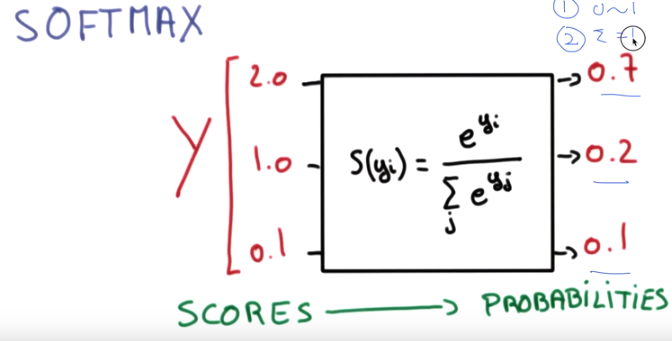 SOFTMAX
① 0~1
② Σ = 1
Y
2.0
1.0
0.1
S(yᵢ) = e^{yᵢ} / Σⱼ e^{yⱼ}
→ 0.7
→ 0.2
→ 0.1
SCORES → PROBABILITIES